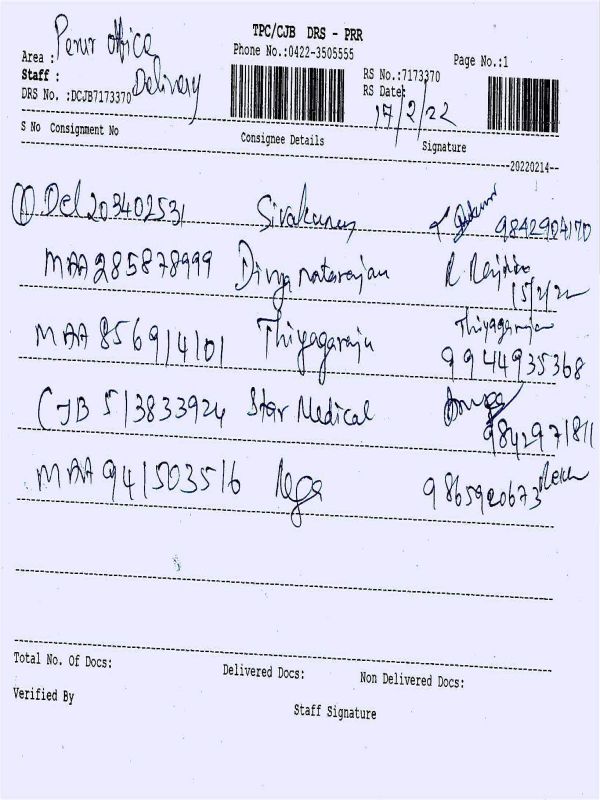 TPC/CJB DRS - PRR
Area : Perur office
Phone No.:0422-3505555
Page No.:1
Staff : Delivery
RS No.:7173370
DRS No. :DCJB7173370
RS Date: 17/2/22
S No Consignment No Consignee Details Signature
20220214
① Del 203402531 Sivakumar 9842904170
MAA 285878999 Divya natarajan 15/2/22
MAA 856914101 Thiyagaraju Thiyagaraju 9944935368
CJB 513833924 Star Medical 9842971811
MAA 941503516 9865920673
Total No. Of Docs: Delivered Docs: Non Delivered Docs:
Verified By
Staff Signature